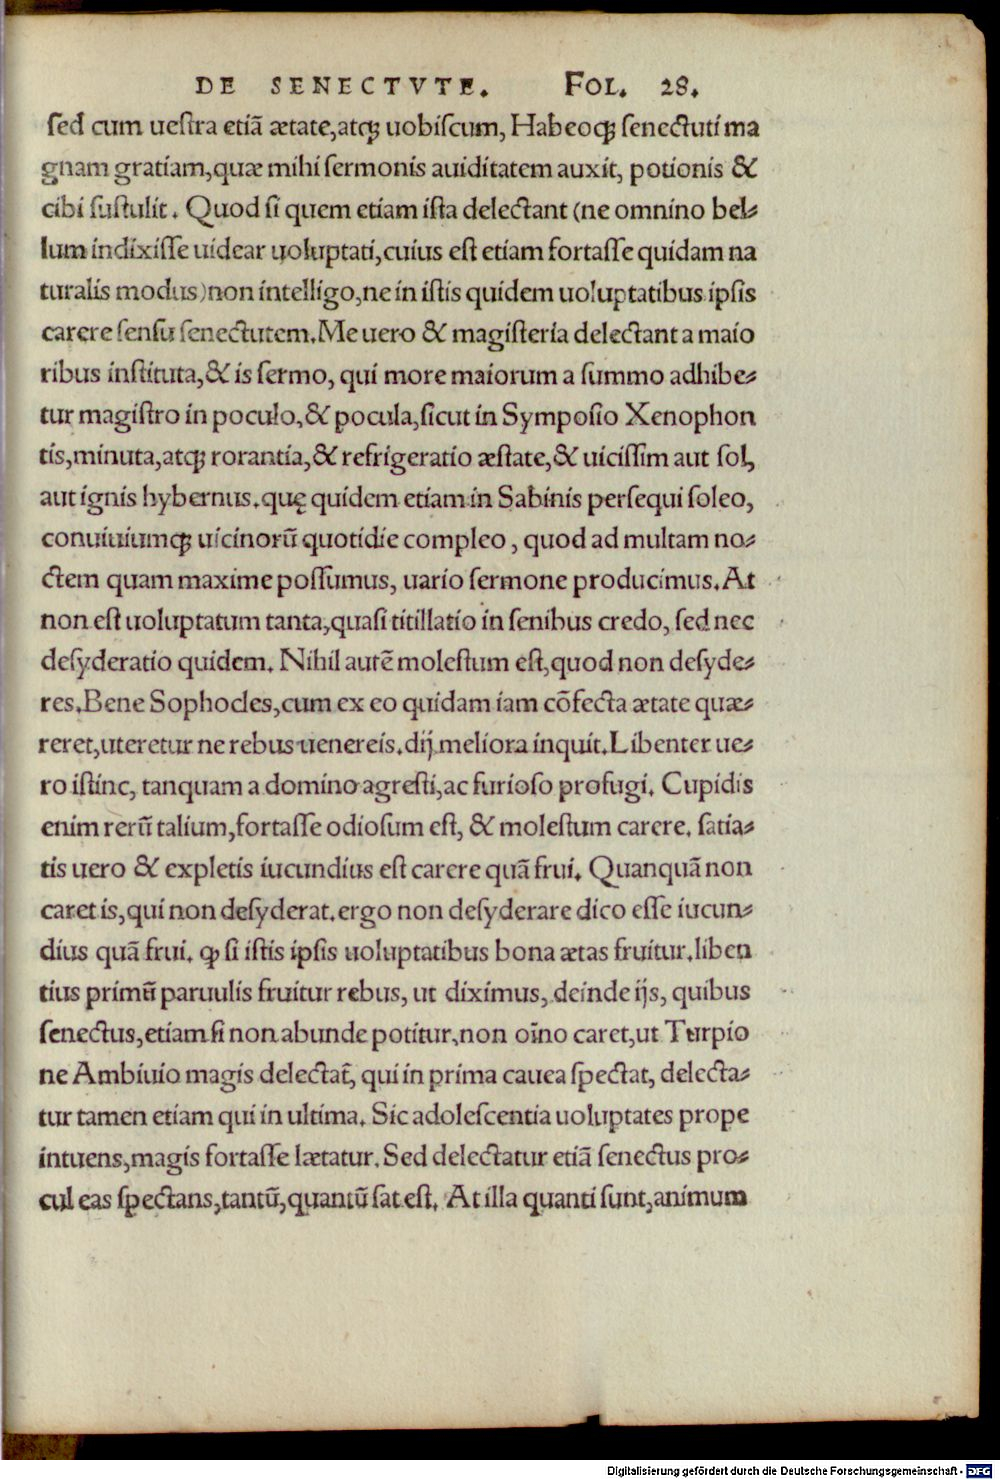 DE SENECTVTE. FOL. 28.
sed cum uestra etiā ætate,atqꝫ uobiscum, Habeoqꝫ senectuti ma
gnam gratiam,quæ mihi sermonis auiditatem auxit, potionis &
cibi sustulit. Quod si quem etiam ista delectant (ne omnino bel⸗
lum indixisse uidear uoluptati,cuius est etiam fortasse quidam na
turalis modus)non intelligo,ne in istis quidem uoluptatibus ipsis
carere sensu senectutem.Me uero & magisteria delectant a maio
ribus instituta,& is sermo, qui more maiorum a summo adhibe⸗
tur magistro in poculo,& pocula,sicut in Symposio Xenophon
tis,minuta,atqꝫ rorantia,& refrigeratio æstate,& uicissim aut sol,
aut ignis hybernus.quę quidem etiam in Sabinis persequi soleo,
conuiuiumqꝫ uicinorū quotidie compleo, quod ad multam no⸗
ctem quam maxime possumus, uario sermone producimus.At
non est uoluptatum tanta,quasi titillatio in senibus credo, sed nec
desyderatio quidem. Nihil autē molestum est,quod non desyde⸗
res.Bene Sophocles,cum ex eo quidam iam cōfecta ætate quæ⸗
reret,uteretur ne rebus uenereis.dij meliora inquit.Libenter ue⸗
ro istinc, tanquam a domino agresti,ac furioso profugi. Cupidis
enim rerū talium,fortasse odiosum est, & molestum carere. satia⸗
tis uero & expletis iucundius est carere quā frui. Quanquā non
caret is,qui non desyderat.ergo non desyderare dico esse iucun⸗
dius quā frui. ꝙ si istis ipsis uoluptatibus bona ætas fruitur.liben
tius primū paruulis fruitur rebus, ut diximus, deinde ijs, quibus
senectus,etiam si non abunde potitur,non oīno caret,ut Turpio
ne Ambiuio magis delectat̄, qui in prima cauea spectat, delecta⸗
tur tamen etiam qui in ultima. Sic adolescentia uoluptates prope
intuens,magis fortasse lætatur.Sed delectatur etiā senectus pro⸗
cul eas spectans,tantū,quantū sat est. At illa quanti sunt,animum
Digitalisierung gefördert durch die Deutsche Forschungsgemeinschaft - DFG